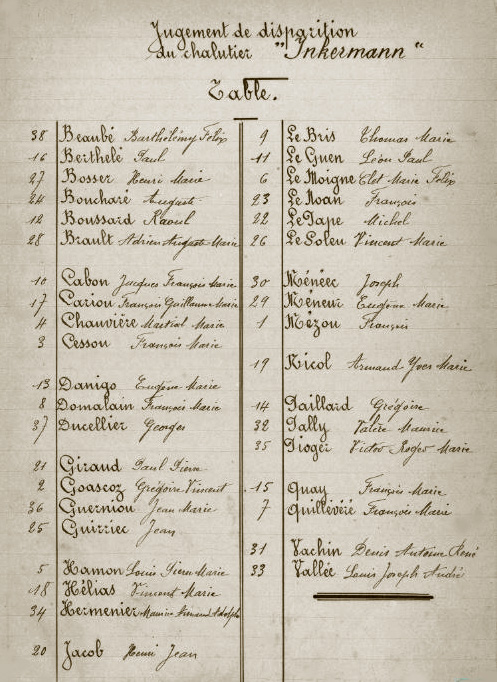 Jugement de disparition
du chalutier "Inkermann"
Table.
38 Beaubé Barthélémy Félix
16 Berthelé Paul
27 Bosser Henri Marie
24 Boucharé Auguste
12 Boussard Raoul
28 Brault Adrien August Marie
10 Cabon Jacques François Marie
17 Cariou François Guillaume Marie
4 Chauvière Martial Marie
3 Cesson François Marie
13 Danigo Eugène Marie
8 Domalain François Marie
37 Ducellier Georges
21 Giraud Paul Pierre
2 Goascoz Grégoire Vincent
36 Guerniou Jean Marie
25 Guirriec Jean
5 Hamon Louis Pierre Marie
18 Hélias Vincent Marie
34 Hermenier Maurice Vincent Adolph
20 Jacob Henri Jean
9 Le Bris Thomas Marie
11 Le Guen Léon Paul
6 Le Moigne Clet Marie Félix
23 Le Moan François
22 Le Pape Michel
26 Le Soleu Vincent Marie
30 Ménéec Joseph
29 Méneur Eugène Marie
1 Mézou François
19 Nicol Armand Yves Marie
14 Paillard Grégoire
32 Pally Valère Maurice
35 Pioger Victor Roger Marie
15 Quay François Marie
7 Quillévéré François Marie
31 Vachin Denis Antoine René
33 Vallée Louis Joseph André